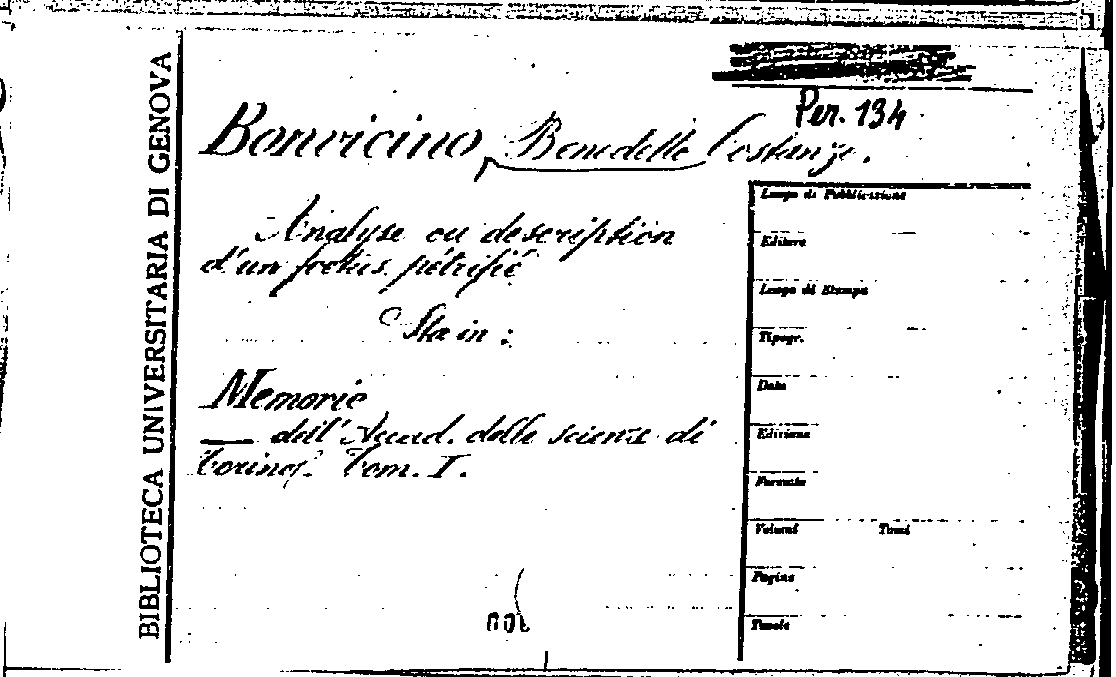 BIBLIOTECA UNIVERSITARIA DI GENOVA
Per. 134
Bonvicino, Benedetto Costanzo.
Analyse ou description
d'un foetus pétrifié
Sta in:
Memorie
— dell'Accad. delle scienze di
Torino. Tom. I.
Luogo di Pubblicazione
Editore
Luogo di Stampa
Tipogr.
Data
Edizione
Formato
Volumi Tomi
Pagine
Tavole